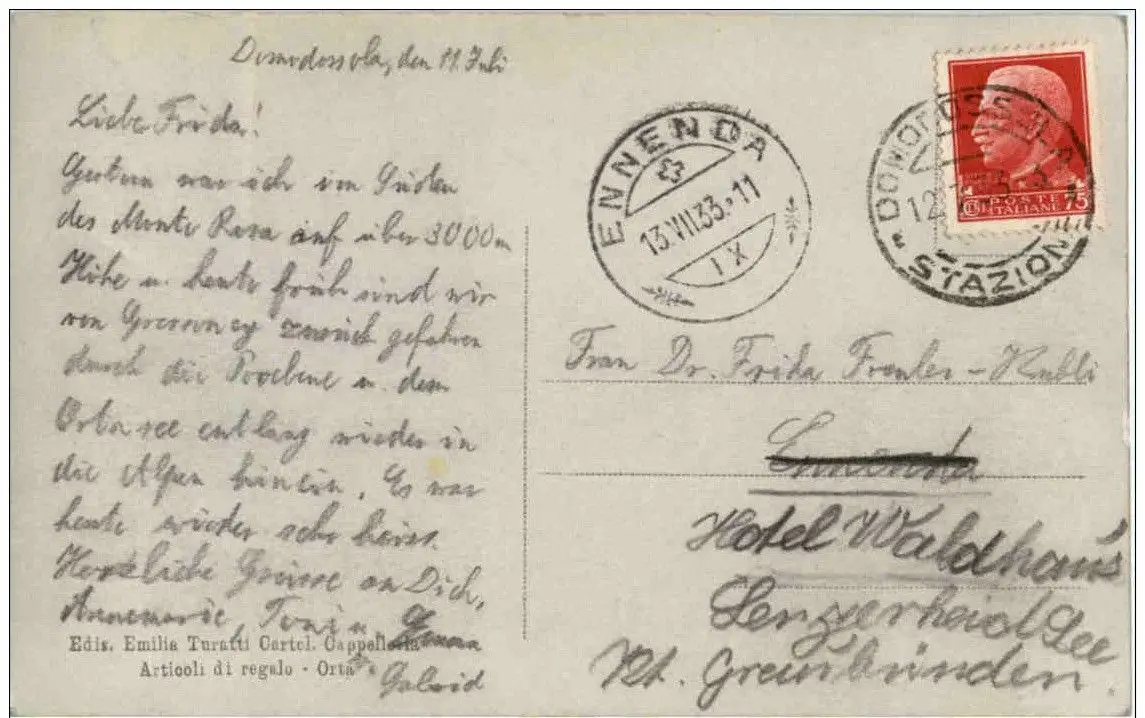 Domodossola, den 11. Juli
Liebe Frida!
Gestern war ich im Süden
des Monte Rosa auf über 3000 m
Höhe u. heute früh sind wir
von Gressoney zurück gefahren
durch die Poebene u. dem
Ortasee entlang wieder in
die Alpen hinein. Es war
heute wieder sehr heiss.
Herzliche Grüsse an Dich,
Annemarie, Toni u.
Edis. Emilia Turatti Cartol. Cappelleria
Articoli di regalo - Orta
ENNENDA
13.VII.33.-11
IX
DOMODOSSOLA
12
STAZION
POSTE
ITALIANE
75
Frau Dr. Frida Freuler-Kubli
Ennenda
Hotel Waldhaus
Lenzerheid See
Kt. Graubünden.